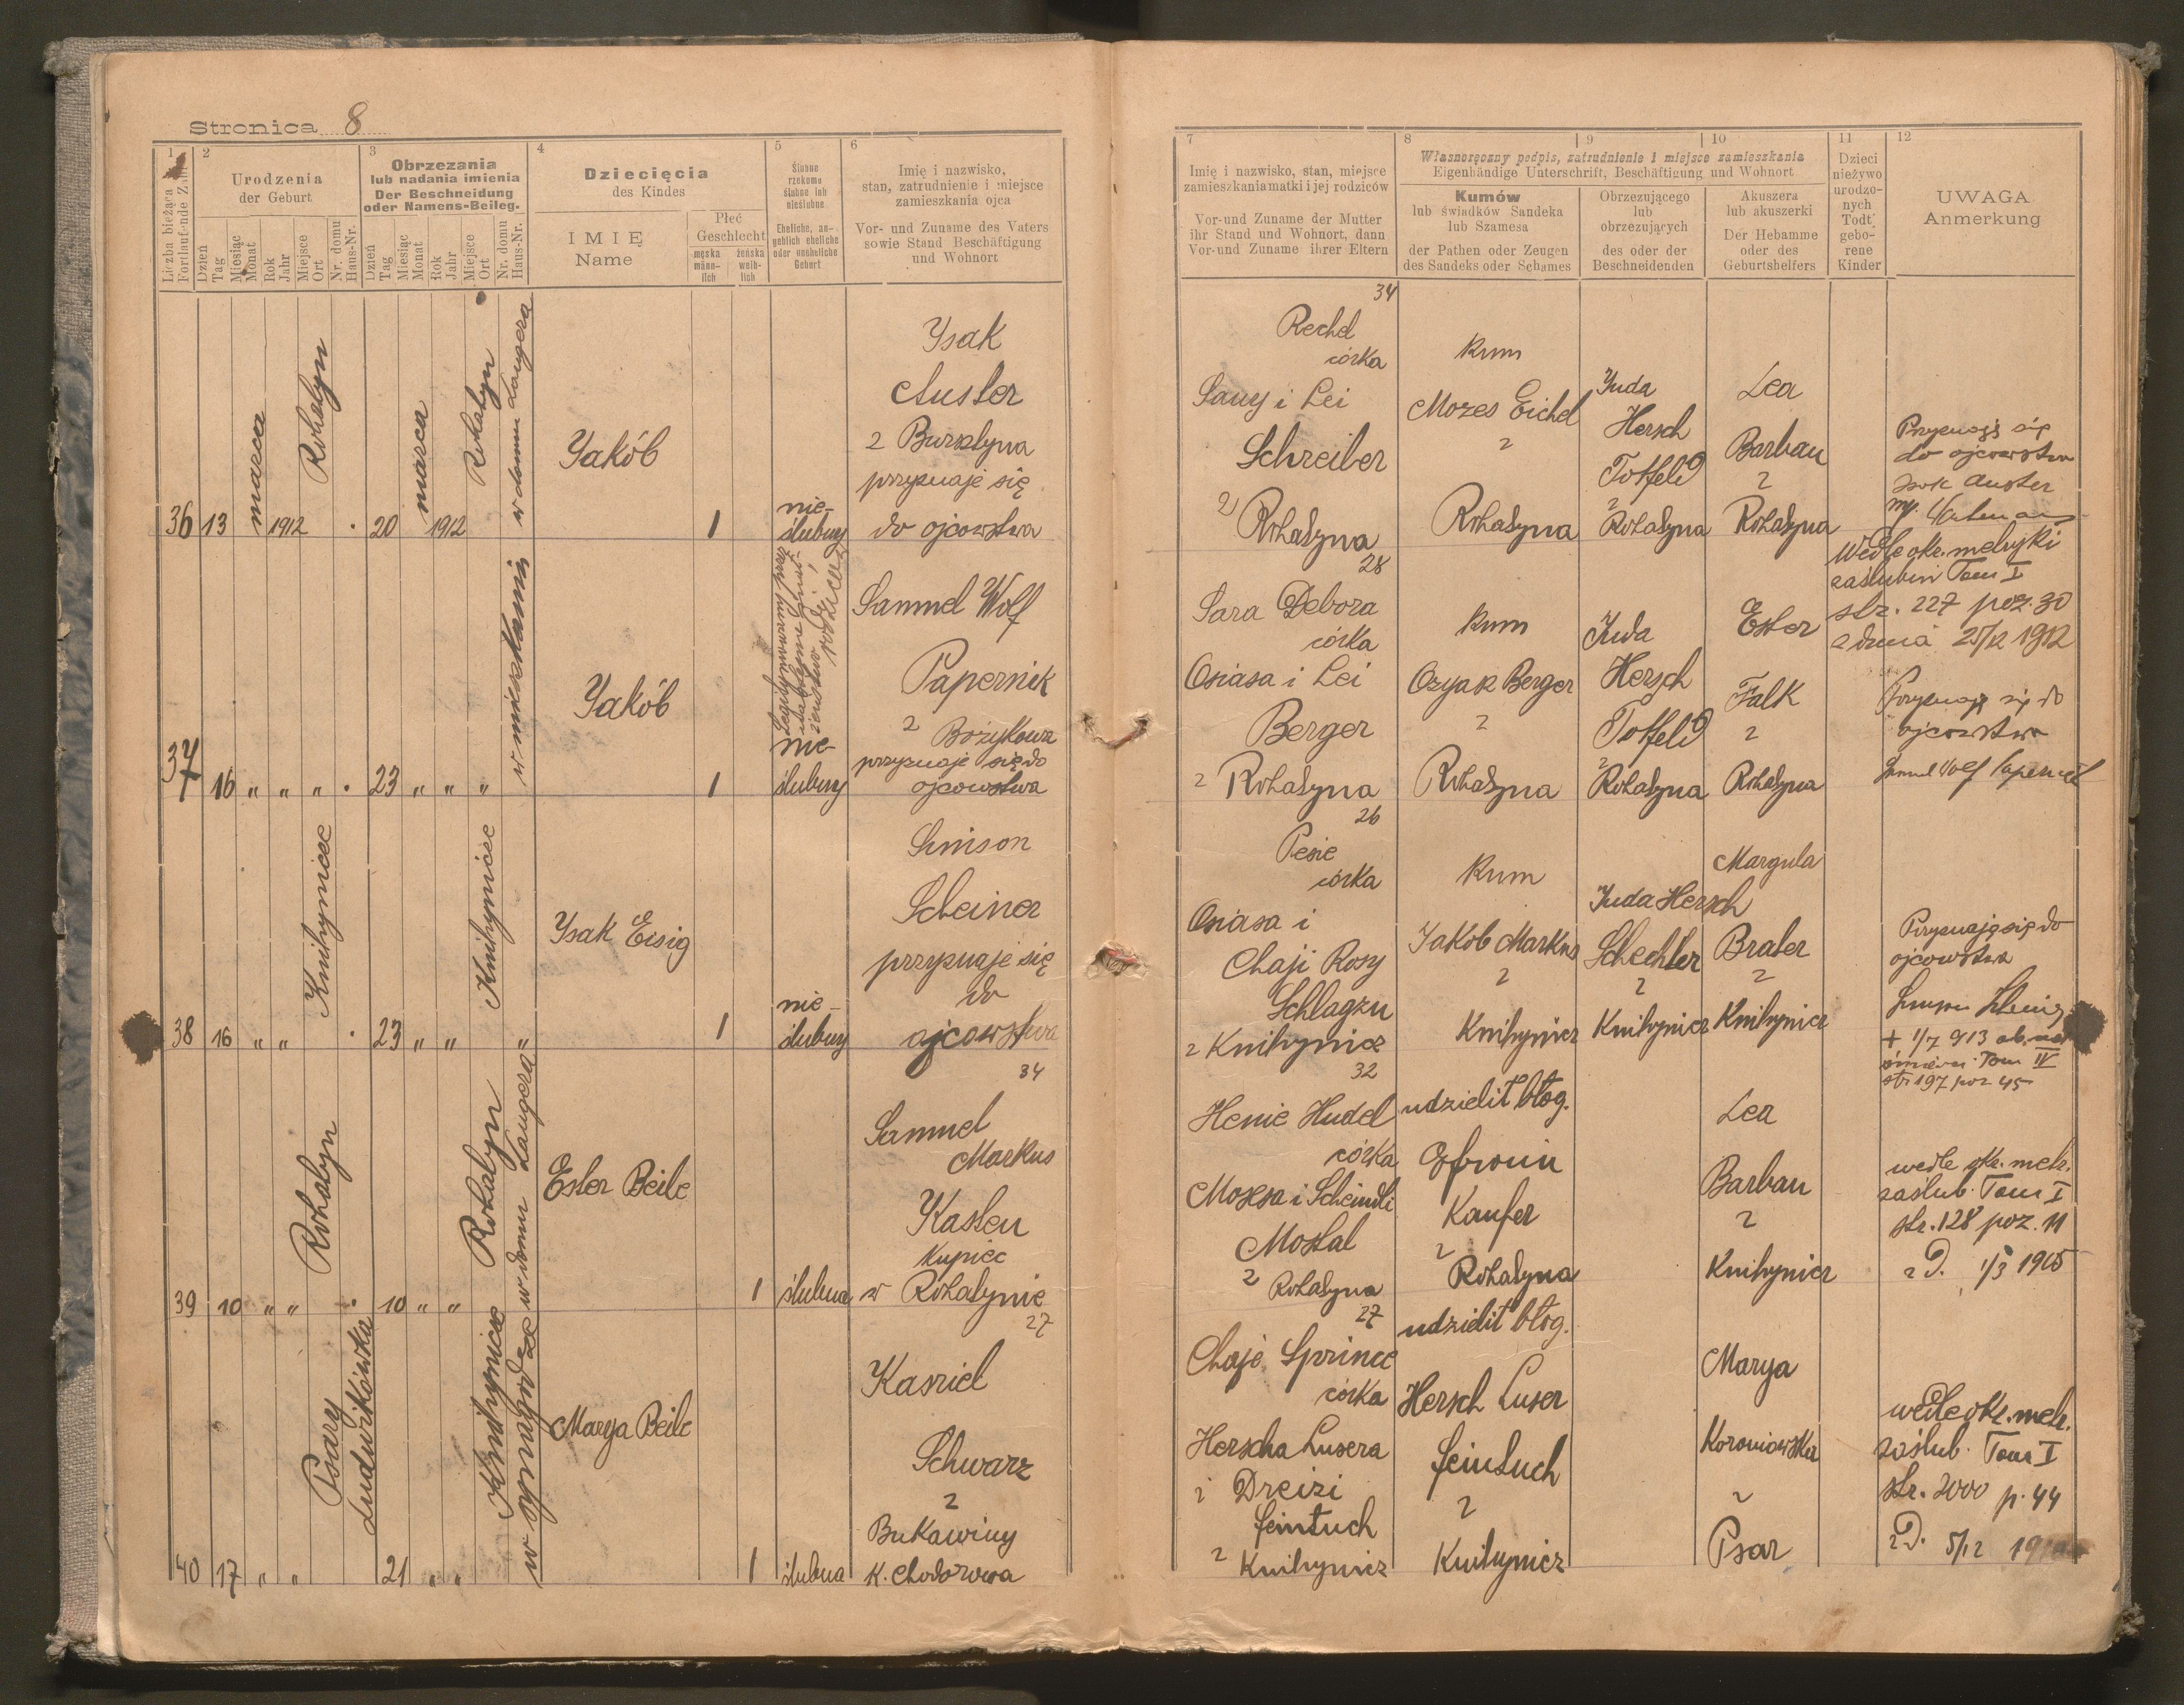 Stronica 8
1
Liczba bieżąca
Fortlaufende Z.
2
Urodzenia
der Geburt
Dzień
Tag
Miesiąc
Monat
Rok
Jahr
Miejsce
Ort
Nr. domu
Haus-Nr.
3
Obrzezania
lub nadania imienia
Der Beschneidung
oder Namens-Beileg.
Dzień
Tag
Miesiąc
Monat
Rok
Jahr
Miejsce
Ort
Nr. domu
Haus-Nr.
4
Dziecięcia
des Kindes
IMIĘ
Name
Płeć
Geschlecht
męska
männ-
lich
żeńska
weib-
lich
5
Ślubne
rzekomo
ślubne lub
nieślubne
Eheliche, an-
geblich eheliche
oder uneheliche
Geburt
6
Imię i nazwisko,
stan, zatrudnienie i miejsce
zamieszkania ojca
Vor- und Zuname des Vaters
sowie Stand Beschäftigung
und Wohnort
7
Imię i nazwisko, stan, miejsce
zamieszkania matki i jej rodziców
Vor-und Zuname der Mutter
ihr Stand und Wohnort, dann
Vor-und Zuname ihrer Eltern
8
9
10
Własnoręczny podpis, zatrudnienie i miejsce zamieszkania
Eigenhändige Unterschrift, Beschäftigung und Wohnort
Kumów
lub świadków Sandeka
lub Szamesa
der Pathen oder Zeugen
des Sandeks oder Schames
Obrzezującego
lub
obrzezujących
des oder der
Beschneidenden
Akuszera
lub akuszerki
Der Hebamme
oder des
Geburtshelfers
11
Dzieci
nieżywo
urodzo-
nych
Todt
gebo-
rene
Kinder
12
UWAGA
Anmerkung
36 13 marca 1912 Rohatyn
20 marca 1912 Rohatyn
w domu Laugera
Yakób
1
nie-
ślubny
Ysak
Auster
z Bursztyna
przyznaje się
do ojcowstwa
34
Rechel
córka
Sany i Lei
Schreiber
z Rohatyna
kum
Mozes Eichel
z
Rohatyna
Juda
Hersch
Totfeld
z
Rohatyna
Lea
Barban
z
Rohatyna
Przyznaję się
do ojcowstwa
Isak Auster
37 16 " " "
23 " " "
w mieszkaniu
Yakób
1
nie-
ślubny
Samuel Wolf
Papernik
z Bożykowa
przyznaje się do
ojcowstwa
28
Sara Debora
córka
Osiasa i Lei
Berger
z Rohatyna
kum
Ozyasz Berger
z
Rohatyna
Juda
Hersch
Totfeld
z
Rohatyna
Ester
Falk
z
Rohatyna
Wedle okr. metryki
zaślubin Tom I
str. 227 poz. 30
z dnia 25/12 1912
Przyznaję się do
ojcowstwa
Samuel Wolf Papernik
38 16 " " Knihynicze
23 " " Knihynicze "
Ysak Eisig
1
nie-
ślubny
Simson
Scheiner
przyznaje się
do
ojcowstwa
26
Pesie
córka
Osiasa i
Chaji Rosy
Schlagzu
z Knihynicz
kum
Jakob Markus
z
Knihynicz
Juda Hersch
Schechter
z
Knihynicz
Margula
Brater
z
Knihynicz
Przyznaję się do
ojcowstwa
+ 1/7 913
Tom IV
str 197 poz 45
39 10 " " Rohatyn
10 " " Rohatyn
w domu Laugera
Ester Beile
1
ślubna
34
Samuel
Markus
Kasten
kupiec
w Rohatynie
32
Henie Hudel
córka
Mozesa i Scheindli
Mostal
z Rohatyna
udzielił błog.
Efroim
Kaufer
z
Rohatyna
Lea
Barban
z
Knihynicz
wedle okr. metr.
zaślub. Tom I
str. 128 poz. 11
z D. 1/3 1905
40 17 " " Psary
Ludwikówka
21 " " Knihynicze
w synagodze
Marya Beile
1
ślubna
27
Kasriel
Schwarz
z
Bukawiny
k. Chodorowa
27
Chaje Sprince
córka
Herscha Lusera
i Dreizi
Feintuch
z Knihynicz
udzielił błog.
Hersch Luser
Feintuch
z
Knihynicz
Marya
Koroniowska
z
Psar
wedle okr. metr.
zaślub. Tom I
str. 2000 p. 44
z D. 5/12